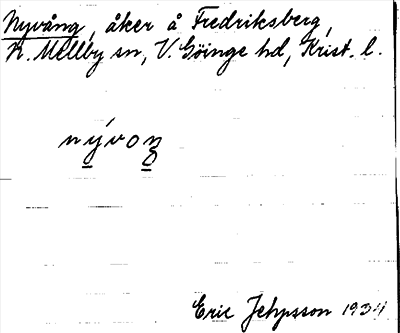 Nyvång, åker å Fredriksberg,
N. Mellby sn, V. Göinge hd, Krist. l.
nývoŋ
Eric Jeppsson 1934